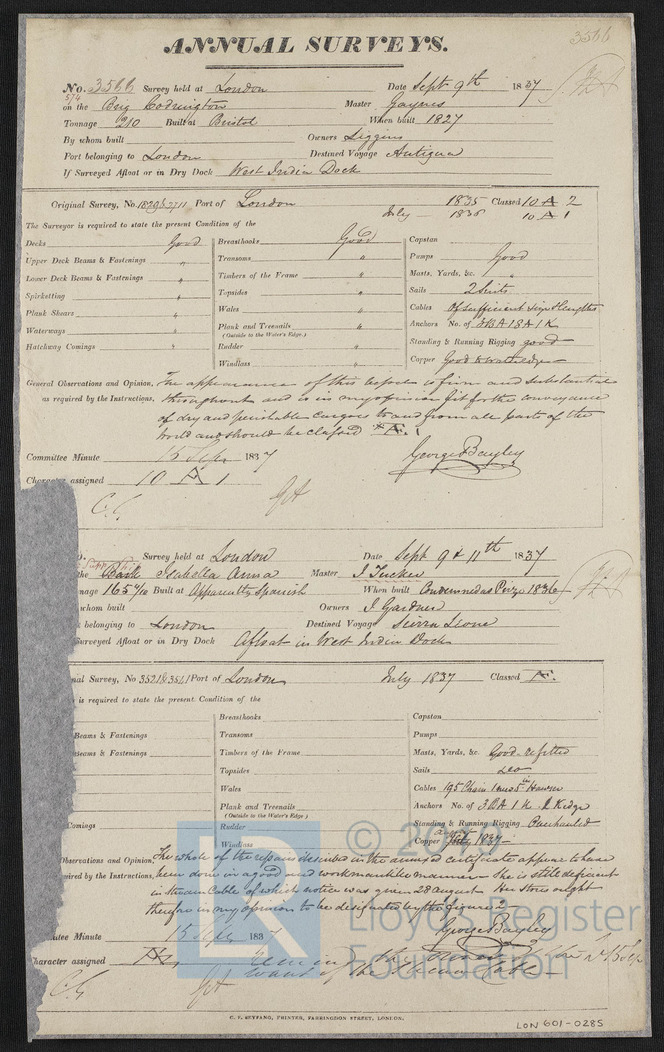 3566
ANNUAL SURVEYS.
No. 3566 Survey held at London Date Sept 9th 1837
on the Brig Codrington Master Gaynes
574
Tonnage 210 Built at Bristol When built 1827
By whom built Owners Liggins
Port belonging to London Destined Voyage Antigua
If Surveyed Afloat or in Dry Dock West India Dock
Original Survey, No. Port of London 1835 Classed 10 A 2
July 1836 10 A 1
The Surveyor is required to state the present Condition of the
Decks Good Breasthooks Good Capstan
Upper Deck Beams & Fastenings " Transoms " Pumps Good
Lower Deck Beams & Fastenings " Timbers of the Frame " Masts, Yards, &c. "
Spirketting " Topsides " Sails 2 Suits
Plank Shears " Wales " Cables Of sufficient size & lengths
Waterways " Plank and Treenails " Anchors No. of 3 B A 1 S A 1 K
(Outside to the Water's Edge.)
Hatchway Comings " Rudder " Standing & Running Rigging good
Windlass " Copper Good to waters edge
General Observations and Opinion, The appearance of this vessel is firm and substantial
as required by the Instructions, throughout and is in my opinion fit for the conveyance
of dry and perishable cargoes to and from all parts of the
world and should be classed A 1
Committee Minute 15 Sep 1837 George Bayley
Character assigned 10 A 1
C. G.
Survey held at London Date Sept 9 & 11th 1837
the Bark Isabella Anna Master J Tucker
nage 165 Built at Apparently Spanish When built Condemned as Prize 1836
whom built Owners J Gardner
belonging to London Destined Voyage Sierra Leone
Surveyed Afloat or in Dry Dock Afloat in West India Dock
nal Survey, No 3521 & 3561 Port of London July 1837 Classed
is required to state the present Condition of the
Breasthooks Capstan
Beams & Fastenings Transoms Pumps
Beams & Fastenings Timbers of the Frame Masts, Yards, &c. Good refitted
Topsides Sails
Wales Cables 195 Chain Hawser
Plank and Treenails Anchors No. of 3 B A 1 K & Kedge
(Outside to the Water's Edge.)
Comings Rudder Standing & Running Rigging Overhauled
Windlass Copper July 1837
Observations and Opinion, The whole of the repairs described in the annexed certificate appear to have
uired by the Instructions, been done in a good and workmanlike manner She is still deficient
in stream Cable of which notice was given 28 August Her stores ought
therefore in my opinion to be designated by the figure 2
George Bayley
ttee Minute 15 Sep 1837
haracter assigned
want of the Stream Cable
C. G.
C. F. SEYFANG, PRINTER, FARRINGDON STREET, LONDON.
LON 601-0285
© 2019
LR
Lloyd's Register
Foundation